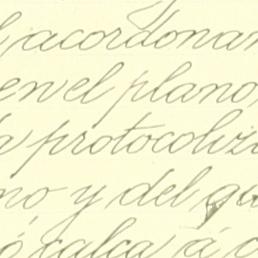 acordona
en el plano
a protocoliz
no y del qu
ó calca á c